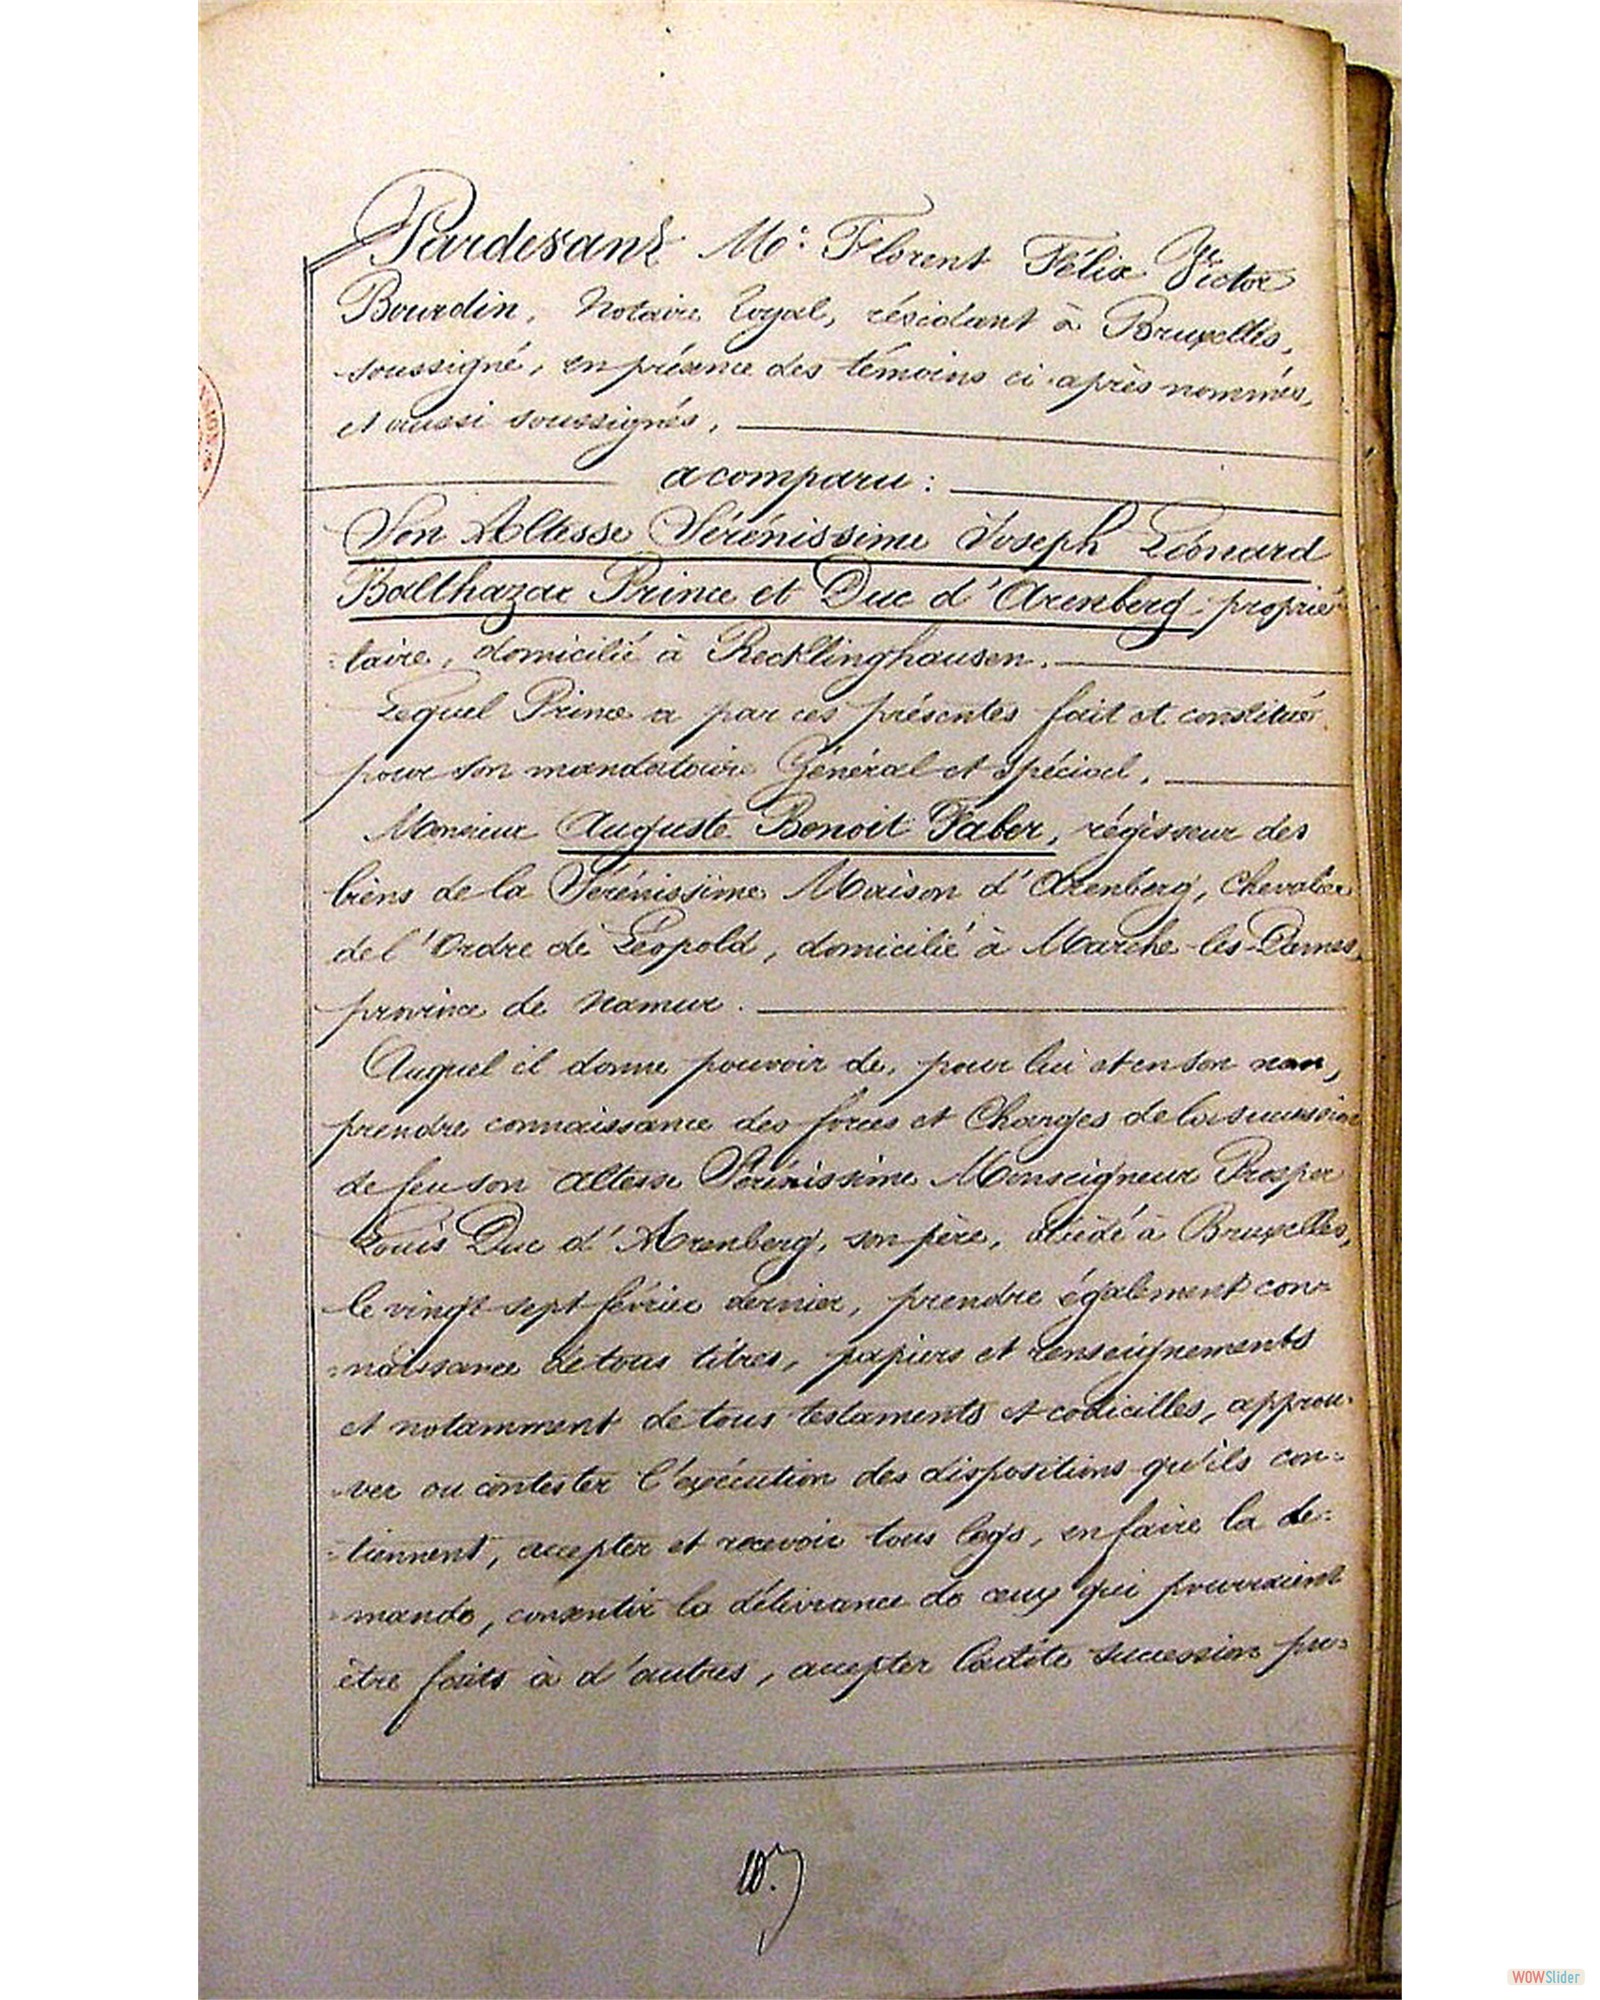 Pardevant Me. Florent Félix Victor
Bourdin, Notaire royal, résidant à Bruxelles,
soussigné, en présence des témoins ci-après nommés,
et aussi soussignés,
a comparu :
Son Altesse Sérénissime Joseph Léonard
Balthazar Prince et Duc d'Arenberg proprié-
-taire, domicilié à Recklinghausen.
Lequel Prince a par ces présentes fait et constitué
pour son mandataire Général et spécial,
Monsieur Auguste Benoit Faber, régisseur des
biens de la Sérénissime Maison d'Arenberg, Chevalier
de l'Ordre de Léopold, domicilié à Marche-les-Dames,
province de Namur.
Auquel il donne pouvoir de, pour lui et en son nom,
prendre connaissance des forces et Charges de la succession
de feu son Altesse Sérénissime Monseigneur Prosper
Louis Duc d'Arenberg, son père, décédé à Bruxelles,
le vingt sept février dernier, prendre également con=
=naissance de tous titres, papiers et renseignements
et notamment de tous testaments et codicilles, approu-
-ver ou contester l'exécution des dispositions qu'ils con=
=tiennent, accepter et recevoir tous legs, en faire la de=
=mande, consentir la délivrance de ceux qui pourraient
être faits à d'autres, accepter ladite succession pu=
WOWSlider